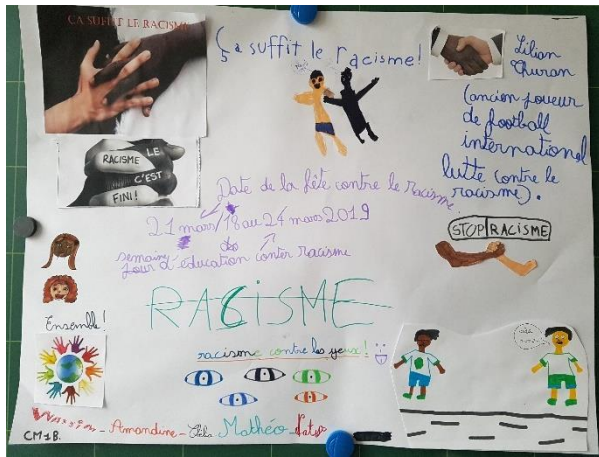 ÇA SUFFIT LE RACISME
Ça suffit le racisme!
Lilian
Thuran
(ancien joueur
de football
international
lutte contre le
racisme).
RACISME LE
C'EST
FINI!
Date de la fête contre le racisme.
21 mars/18 au 24 mars 2019
semaine
jour d'éducation conter racisme
STOP RACISME
RACISME
Ensemble!
racisme contre les yeux!
Amandine - Mathéo
CM1B.